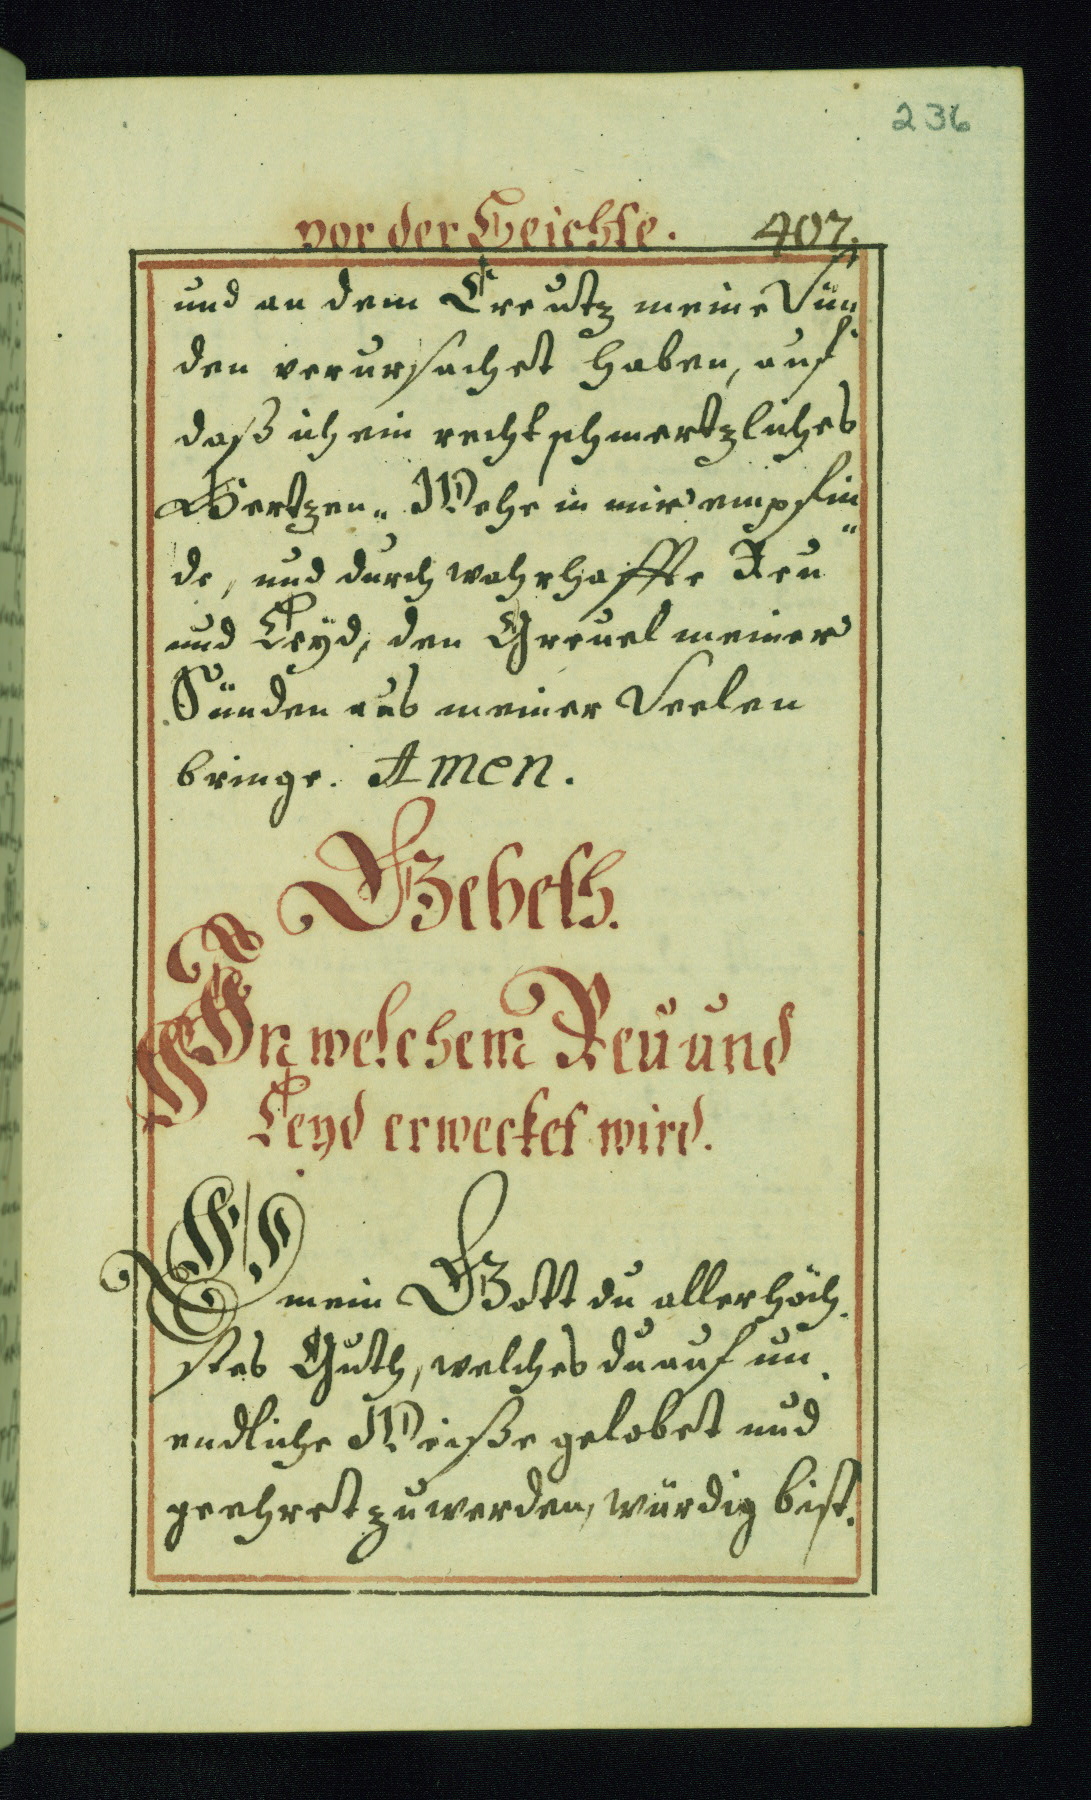 236
vor der Beichte. 407.
und an dem Creutz meine Sün„
den verursachet haben, auf
daß ich ein recht schmertzliches
Hertzen„ Wehe in mir empfin„
de, und durch wahrhaffte Reu
und Leyd, den Greuel meiner
Sünden aus meiner Seelen
bringe. Amen.
Gebeth.
In welchem Reü und
Leyd erwecket wird.
mein Gott du allerhöch„
stes Guth, welches du auf un„
endliche Weiße gelobet und
geehret zu werden, würdig bist.